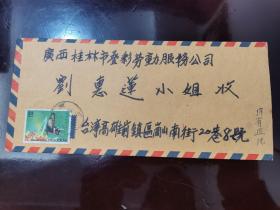 廣西桂林市叠彩劳動服務公司
劉惠蓮小姐收
台灣高雄前鎮區崗山南街20巷8號